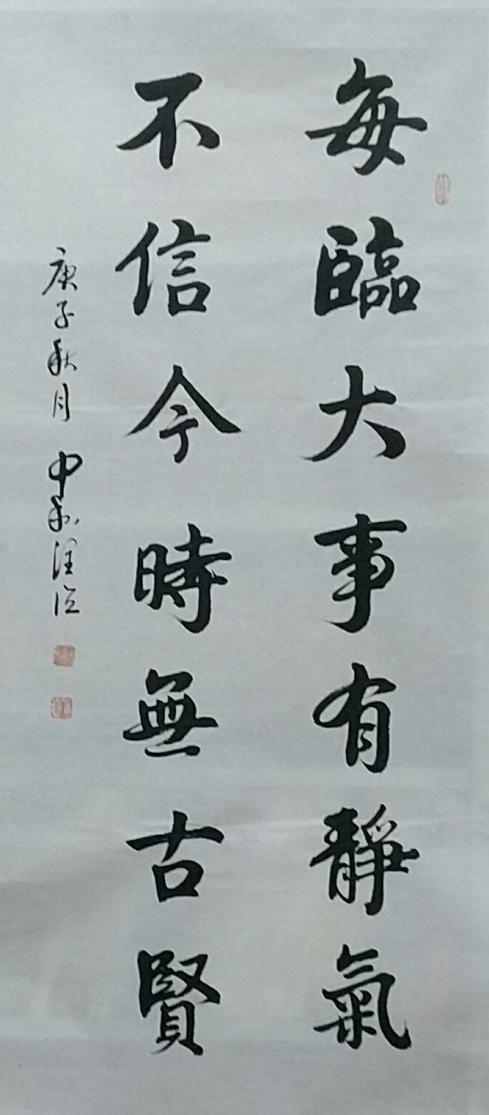 每臨大事有靜氣
不信今時無古賢
庚子秋月 中和